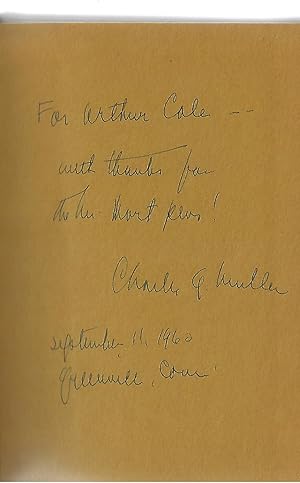 For Arthur Cole --
with thanks for
the
Charles G. Muller
September 11, 1963
Greenwich, Conn.